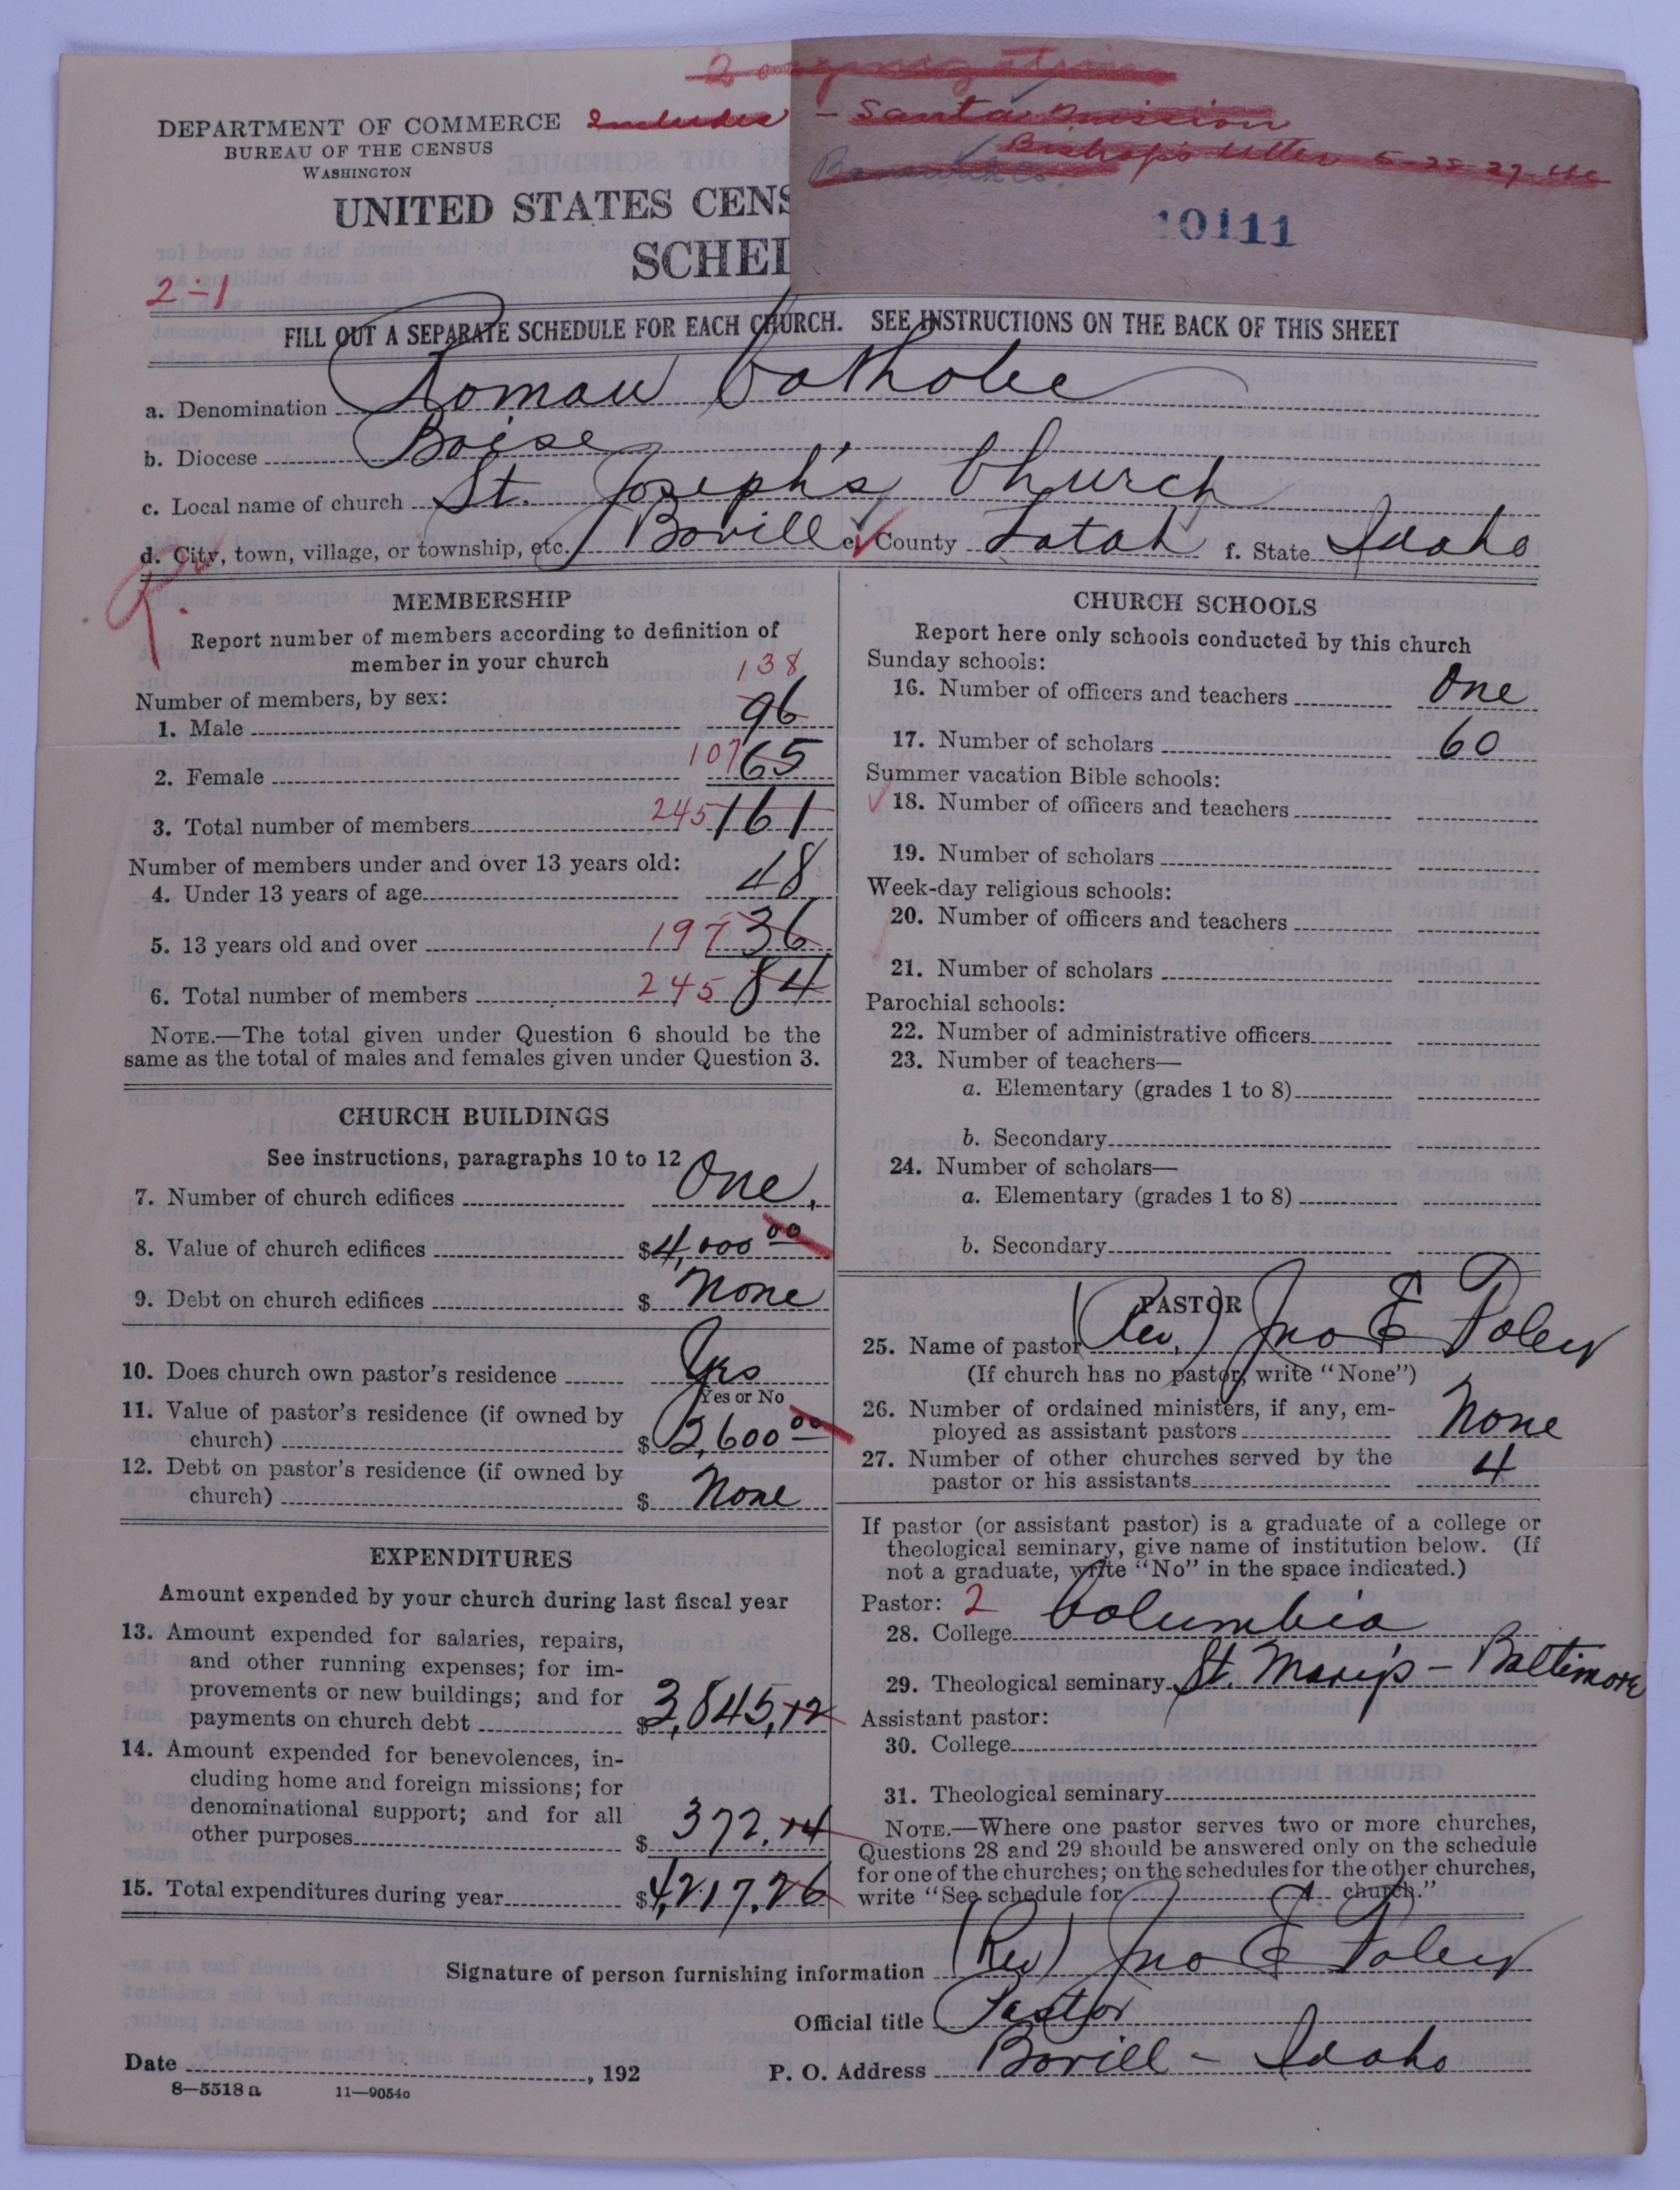 2 organizations
DEPARTMENT OF COMMERCE Includes - Santa Mission
BUREAU OF THE CENSUS
WASHINGTON
Bishop's letter 5-25-27
Benewah Co.
UNITED STATES CENS
10111
SCHEI
2-1
FILL OUT A SEPARATE SCHEDULE FOR EACH CHURCH. SEE INSTRUCTIONS ON THE BACK OF THIS SHEET
a. Denomination Roman Catholic
b. Diocese Boise
c. Local name of church St. Joseph's Church
d. City, town, village, or township, etc. Bovill e. County Latah f. State Idaho
MEMBERSHIP
Report number of members according to definition of
member in your church
138
Number of members, by sex:
1. Male 96
2. Female 107 65
3. Total number of members 245 161
Number of members under and over 13 years old:
4. Under 13 years of age 48
5. 13 years old and over 197 36
6. Total number of members 245 84
NOTE.—The total given under Question 6 should be the
same as the total of males and females given under Question 3.
CHURCH BUILDINGS
See instructions, paragraphs 10 to 12
7. Number of church edifices One.
8. Value of church edifices $4,000 00
9. Debt on church edifices $ None
10. Does church own pastor's residence Yes
Yes or No
11. Value of pastor's residence (if owned by
church) $ 2,600 00
12. Debt on pastor's residence (if owned by
church) $ None
EXPENDITURES
Amount expended by your church during last fiscal year
13. Amount expended for salaries, repairs,
and other running expenses; for im-
provements or new buildings; and for
payments on church debt $3,845,12
14. Amount expended for benevolences, in-
cluding home and foreign missions; for
denominational support; and for all
other purposes $ 372.14
15. Total expenditures during year $4,217.26
CHURCH SCHOOLS
Report here only schools conducted by this church
Sunday schools:
16. Number of officers and teachers One
17. Number of scholars 60
Summer vacation Bible schools:
18. Number of officers and teachers
19. Number of scholars
Week-day religious schools:
20. Number of officers and teachers
21. Number of scholars
Parochial schools:
22. Number of administrative officers
23. Number of teachers—
a. Elementary (grades 1 to 8)
b. Secondary
24. Number of scholars—
a. Elementary (grades 1 to 8)
b. Secondary
PASTOR
25. Name of pastor (Rev.) Jno E Foley
(If church has no pastor, write "None")
26. Number of ordained ministers, if any, em-
ployed as assistant pastors None
27. Number of other churches served by the
pastor or his assistants 4
If pastor (or assistant pastor) is a graduate of a college or
theological seminary, give name of institution below. (If
not a graduate, write "No" in the space indicated.)
Pastor: 2
28. College Columbia
29. Theological seminary St. Mary's - Baltimore
Assistant pastor:
30. College
31. Theological seminary
NOTE.—Where one pastor serves two or more churches,
Questions 28 and 29 should be answered only on the schedule
for one of the churches; on the schedules for the other churches,
write "See schedule for church."
Signature of person furnishing information (Rev) Jno E Foley
Official title Pastor
Date , 192 P. O. Address Bovill - Idaho
8—5518 a 11—9054c